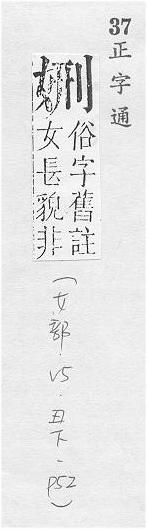 37
正字通
俗字舊註
女長貌非
(女部.V5.丑下-P52)